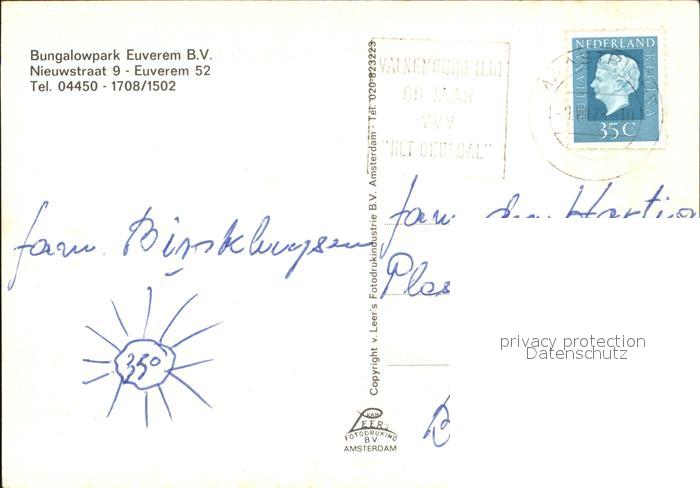 Bungalowpark Euverem B.V.
Nieuwstraat 9 - Euverem 52
Tel. 04450 - 1708/1502
VALKENBURG (LB)
90 JAAR
VVV
"HET GEUL DAL"
NEDERLAND
JULIANA REGINA
35 C
Copyright v. Leer's Fotodrukindustrie B.V. Amsterdam - Tel. 020-823223
fam.
fam
Plas
35°
privacy protection
Datenschutz
VAN
LEER
FOTODRUKIND
B.V.
AMSTERDAM